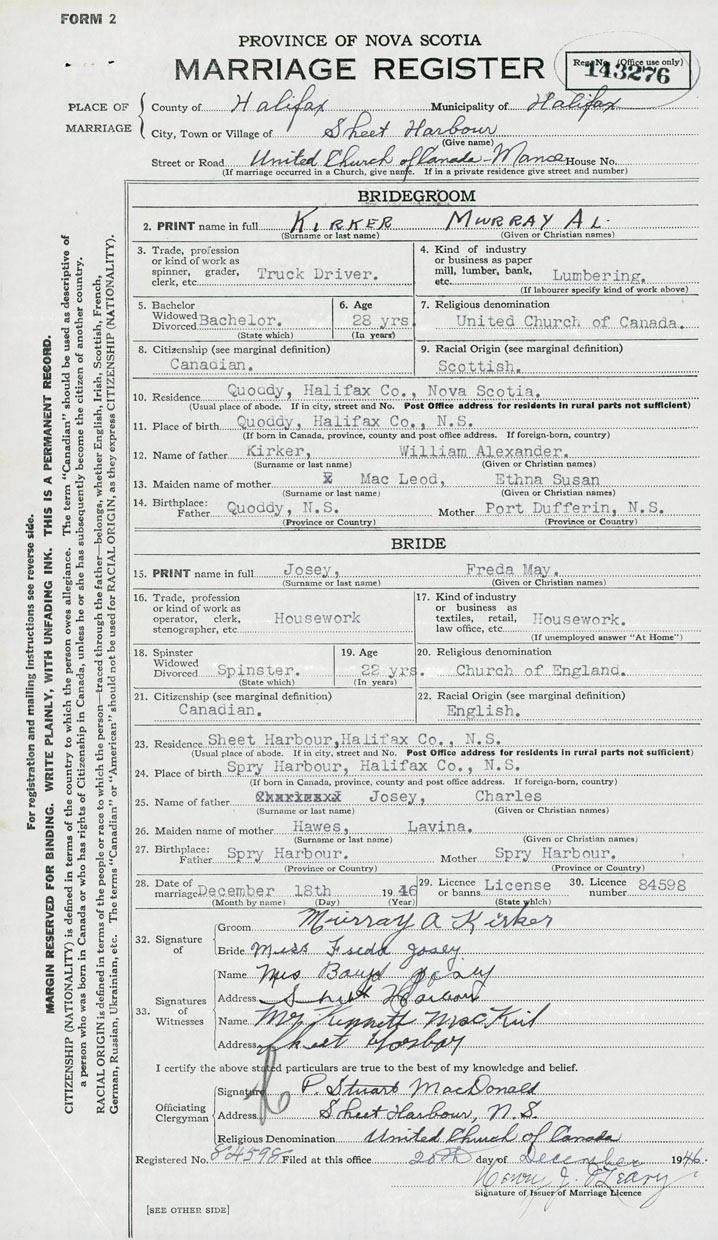 FORM 2
PROVINCE OF NOVA SCOTIA
MARRIAGE REGISTER
Reg. No. (Office use only)
143276
PLACE OF MARRIAGE
County of Halifax Municipality of Halifax
City, Town or Village of Sheet Harbour
(Give name)
Street or Road United Church of Canada - Manse House No.
(If marriage occurred in a Church, give name. If in a private residence give street and number)
BRIDEGROOM
2. PRINT name in full KIRKER MURRAY AL.
(Surname or last name) (Given or Christian names)
3. Trade, profession or kind of work as spinner, grader, clerk, etc. Truck Driver.
4. Kind of industry or business as paper mill, lumber, bank, etc. Lumbering.
(If labourer specify kind of work above)
5. Bachelor Widowed Divorced Bachelor.
(State which)
6. Age 28 yrs
(In years)
7. Religious denomination
United Church of Canada.
8. Citizenship (see marginal definition)
Canadian.
9. Racial Origin (see marginal definition)
Scottish.
10. Residence Quoddy, Halifax Co., Nova Scotia.
(Usual place of abode. If in city, street and No. Post Office address for residents in rural parts not sufficient)
11. Place of birth Quoddy, Halifax Co., N.S.
(If born in Canada, province, county and post office address. If foreign-born, country)
12. Name of father Kirker, William Alexander.
(Surname or last name) (Given or Christian names)
13. Maiden name of mother Mac Leod, Ethna Susan
(Surname or last name) (Given or Christian names)
14. Birthplace: Father Quoddy, N.S. Mother Port Dufferin, N.S.
(Province or Country) (Province or Country)
BRIDE
15. PRINT name in full Josey, Freda May.
(Surname or last name) (Given or Christian names)
16. Trade, profession or kind of work as operator, clerk, stenographer, etc. Housework
17. Kind of industry or business as textiles, retail, law office, etc. Housework.
(If unemployed answer "At Home")
18. Spinster Widowed Divorced Spinster.
(State which)
19. Age 22 yrs.
(In years)
20. Religious denomination
Church of England.
21. Citizenship (see marginal definition)
Canadian.
22. Racial Origin (see marginal definition)
English.
23. Residence Sheet Harbour, Halifax Co., N.S.
(Usual place of abode. If in city, street and No. Post Office address for residents in rural parts not sufficient)
24. Place of birth Spry Harbour, Halifax Co., N.S.
(If born in Canada, province, county and post office address. If foreign-born, country)
25 Name of father Josey, Charles
(Surname or last name) (Given or Christian names)
26. Maiden name of mother Hawes, Lavina.
(Surname or last name) (Given or Christian names)
27. Birthplace: Father Spry Harbour. Mother Spry Harbour.
(Province or Country) (Province or Country)
28. Date of marriage December 18th 1946
(Month by name) (Day) (Year)
29. Licence or banns License
(State which)
30. Licence number 84598
32. Signature of
Groom Murray A Kirker
Bride Miss Freda Josey
33. Signatures of Witnesses
Name Mrs Boyd Josey
Address Sheet Harbour
Name Mr Kenneth
Address Sheet
I certify the above stated particulars are true to the best of my knowledge and belief.
Officiating Clergyman
Signature P. Stuart MacDonald
Address Sheet Harbour, N.S.
Religious Denomination United Church of Canada
Registered No. 84598 Filed at this office 20th day of December 1946.
Henry J. O'Leary
Signature of Issuer of Marriage Licence
[SEE OTHER SIDE]
For registration and mailing instructions see reverse side.
MARGIN RESERVED FOR BINDING. WRITE PLAINLY, WITH UNFADING INK. THIS IS A PERMANENT RECORD.
CITIZENSHIP (NATIONALITY) is defined in terms of the country to which the person owes allegiance. The term "Canadian" should be used as descriptive of
a person who was born in Canada or who has rights of Citizenship in Canada, unless he or she has subsequently become the citizen of another country.
RACIAL ORIGIN is defined in terms of the people or race to which the person—traced through the father—belongs, whether English, Irish, Scottish, French,
German, Russian, Ukrainian, etc. The terms "Canadian" or "American" should not be used for RACIAL ORIGIN, as they express CITIZENSHIP (NATIONALITY).